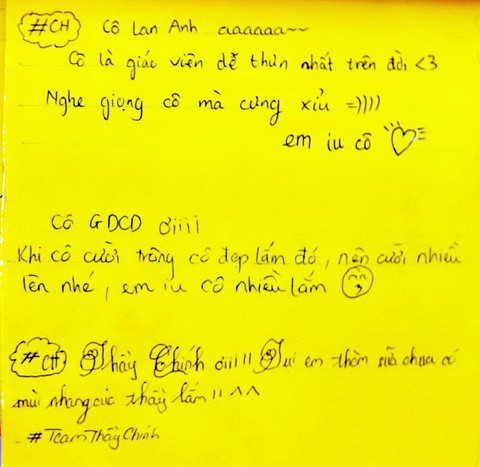 #CH Cô Lan Anh aaaaaa~
Cô là giác viên dễ thưn nhất trên đời <3
Nghe giọng cô mà cưng xỉu =))))
em iu cô
Cô GDCD ơiiii
Khi cô cười trông cô đẹp lắm đó, nên cười nhiều
lên nhé, em iu cô nhiều lắm
#CH Thầy Chính ơiii!! Tụi em thèm sữa chua có
mùi nhang của thầy lắm!! ^^
#TeamThầyChính